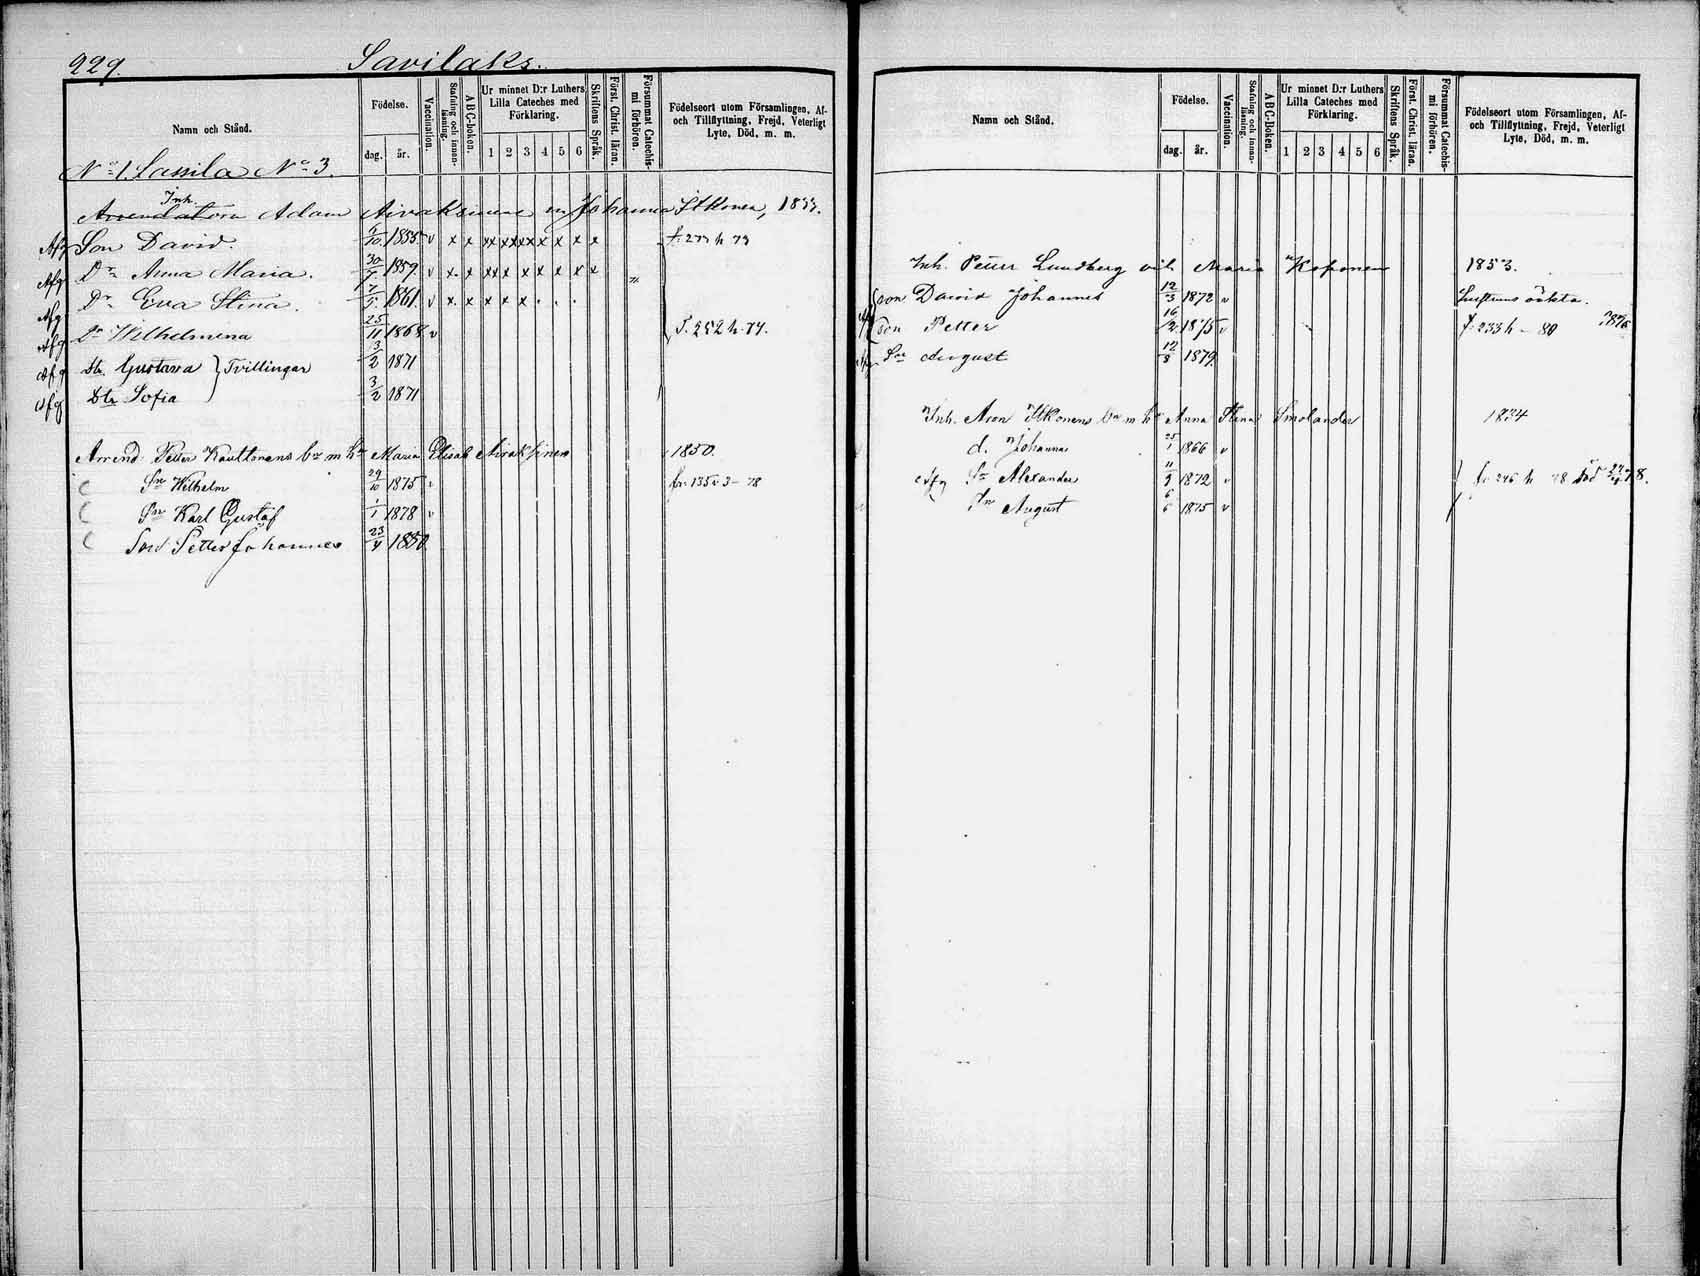 229.
Savilaks.
Namn och Stånd.
Födelse.
dag.
år.
Vaccination.
Stafning och innanläsning.
ABC-boken.
Ur minnet D:r Luthers Lilla Cateches med Förklaring.
1 2 3 4 5 6
Skriftens Språk.
Först. Christ. läran.
Försummat Catechismi förhören.
Födelseort utom Församlingen, Af- och Tillflyttning, Frejd, Veterligt Lyte, Död, m. m.
No 1. Lassila No 3.
Inh.
Arrendatorn Adam Airaksinens m Johanna Itkonen, 1833.
Afg Son David. 6/10 1855 v x x xx xxxx x x x x
Afg Dr Anna Maria. 30/7 1859. v x x xx x x x x x x
Afg Dr Eva Stina. 7/5 1861. v x x x x x
Afg Dr Wilhelmina 25/11 1868 v f. 252 h. 77.
Afg Dtr. Gustava } Tvillingar 3/2 1871
Afg Dtr Sofia 3/2 1871
Arrend. Petter Kauttonens br m hu Maria Elisab Airaksinen 1850.
Sn Wilhelm 29/10 1875 v fr. 135 v 3 - 78
Sn Karl Gustaf 1/1 1878 v
Son Petter Johannes 23/4 1880
Namn och Stånd.
Födelse.
dag.
år.
Vaccination.
Stafning och innanläsning.
ABC-boken.
Ur minnet D:r Luthers Lilla Cateches med Förklaring.
1 2 3 4 5 6
Skriftens Språk.
Först. Christ. läran.
Försummat Catechismi förhören.
Födelseort utom Församlingen, Af- och Tillflyttning, Frejd, Veterligt Lyte, Död, m. m.
Inh. Petter Lundberg Maria Koponen 1853.
son David Johannes 12/3 1872 v
son Petter 16/2 1875 v f. 233 h - 80
Afg Sn August 12/8 1879.
Inh. Aron Itkonens br m hu Anna Stina Smolander 1834
d. Johanna 25/1 1866 v
Afg Sn Alexander 11/9 1872 v fr 246 h 78 död
Sn August 6/6 1875 v